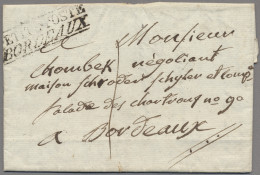 PETITE POSTE
BORDEAUX
Monsieur
négotiant
maison Schroder Schyler et Comp
des chartrons no 90
a Bordeaux